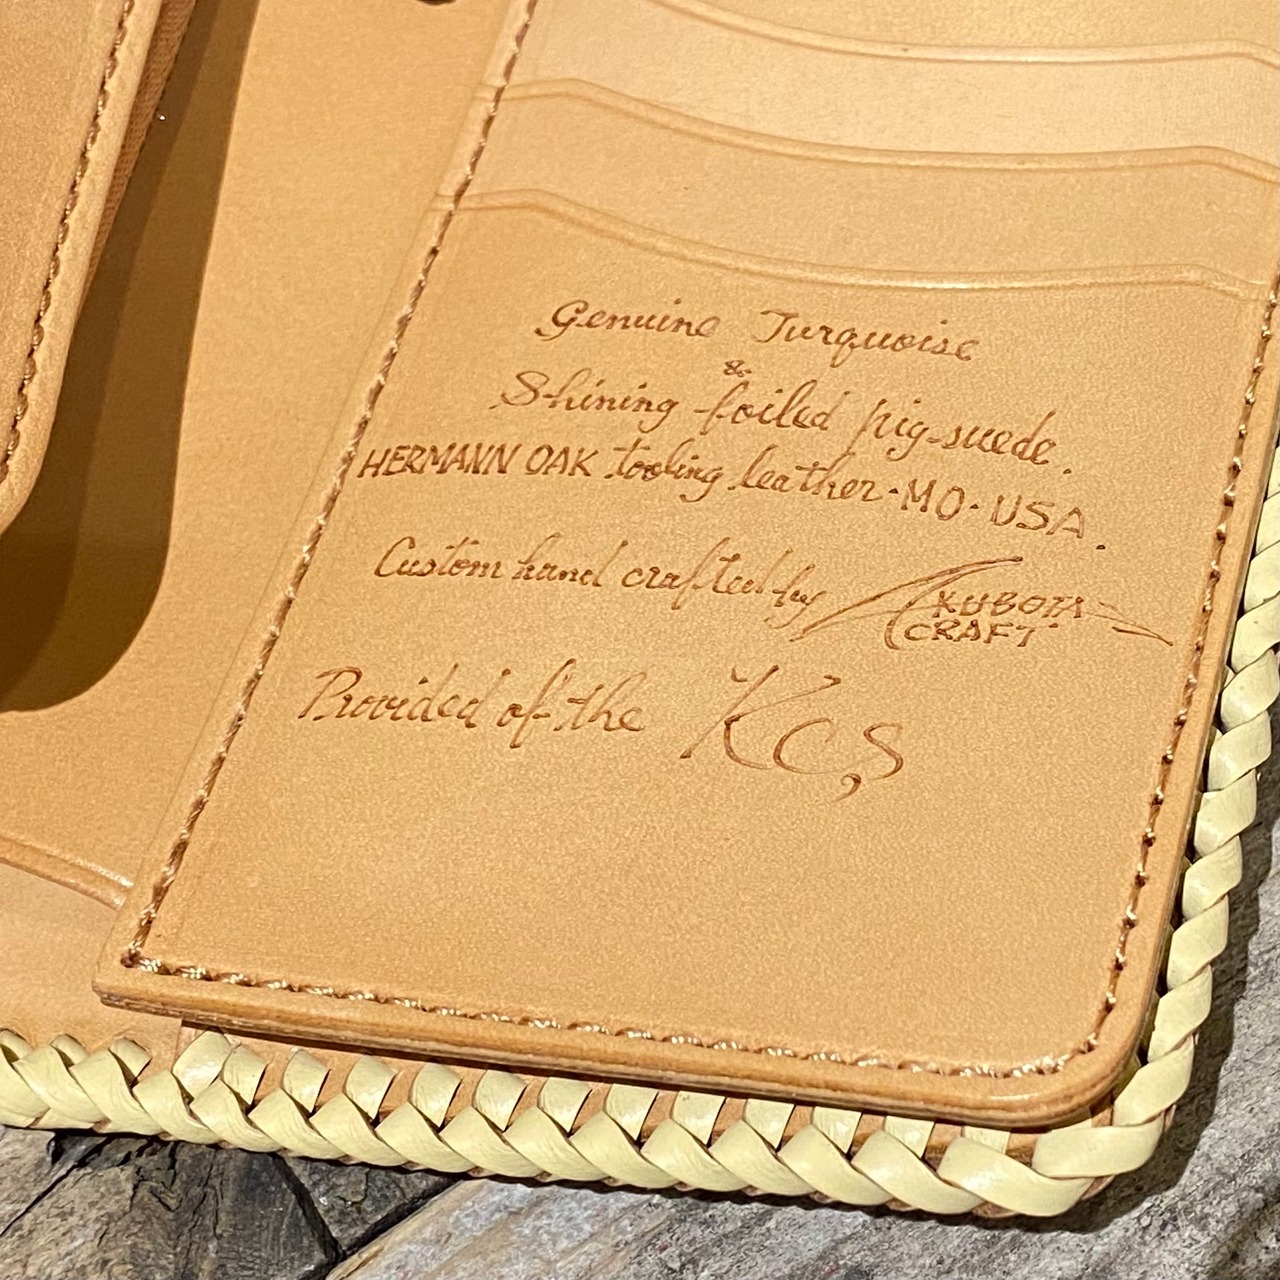 Genuine Turquoise
&
Shining foiled pig-suede.
HERMANN OAK tooling leather·MO·USA.
Custom hand crafted by KUBOTA CRAFT
Provided of the KC,S